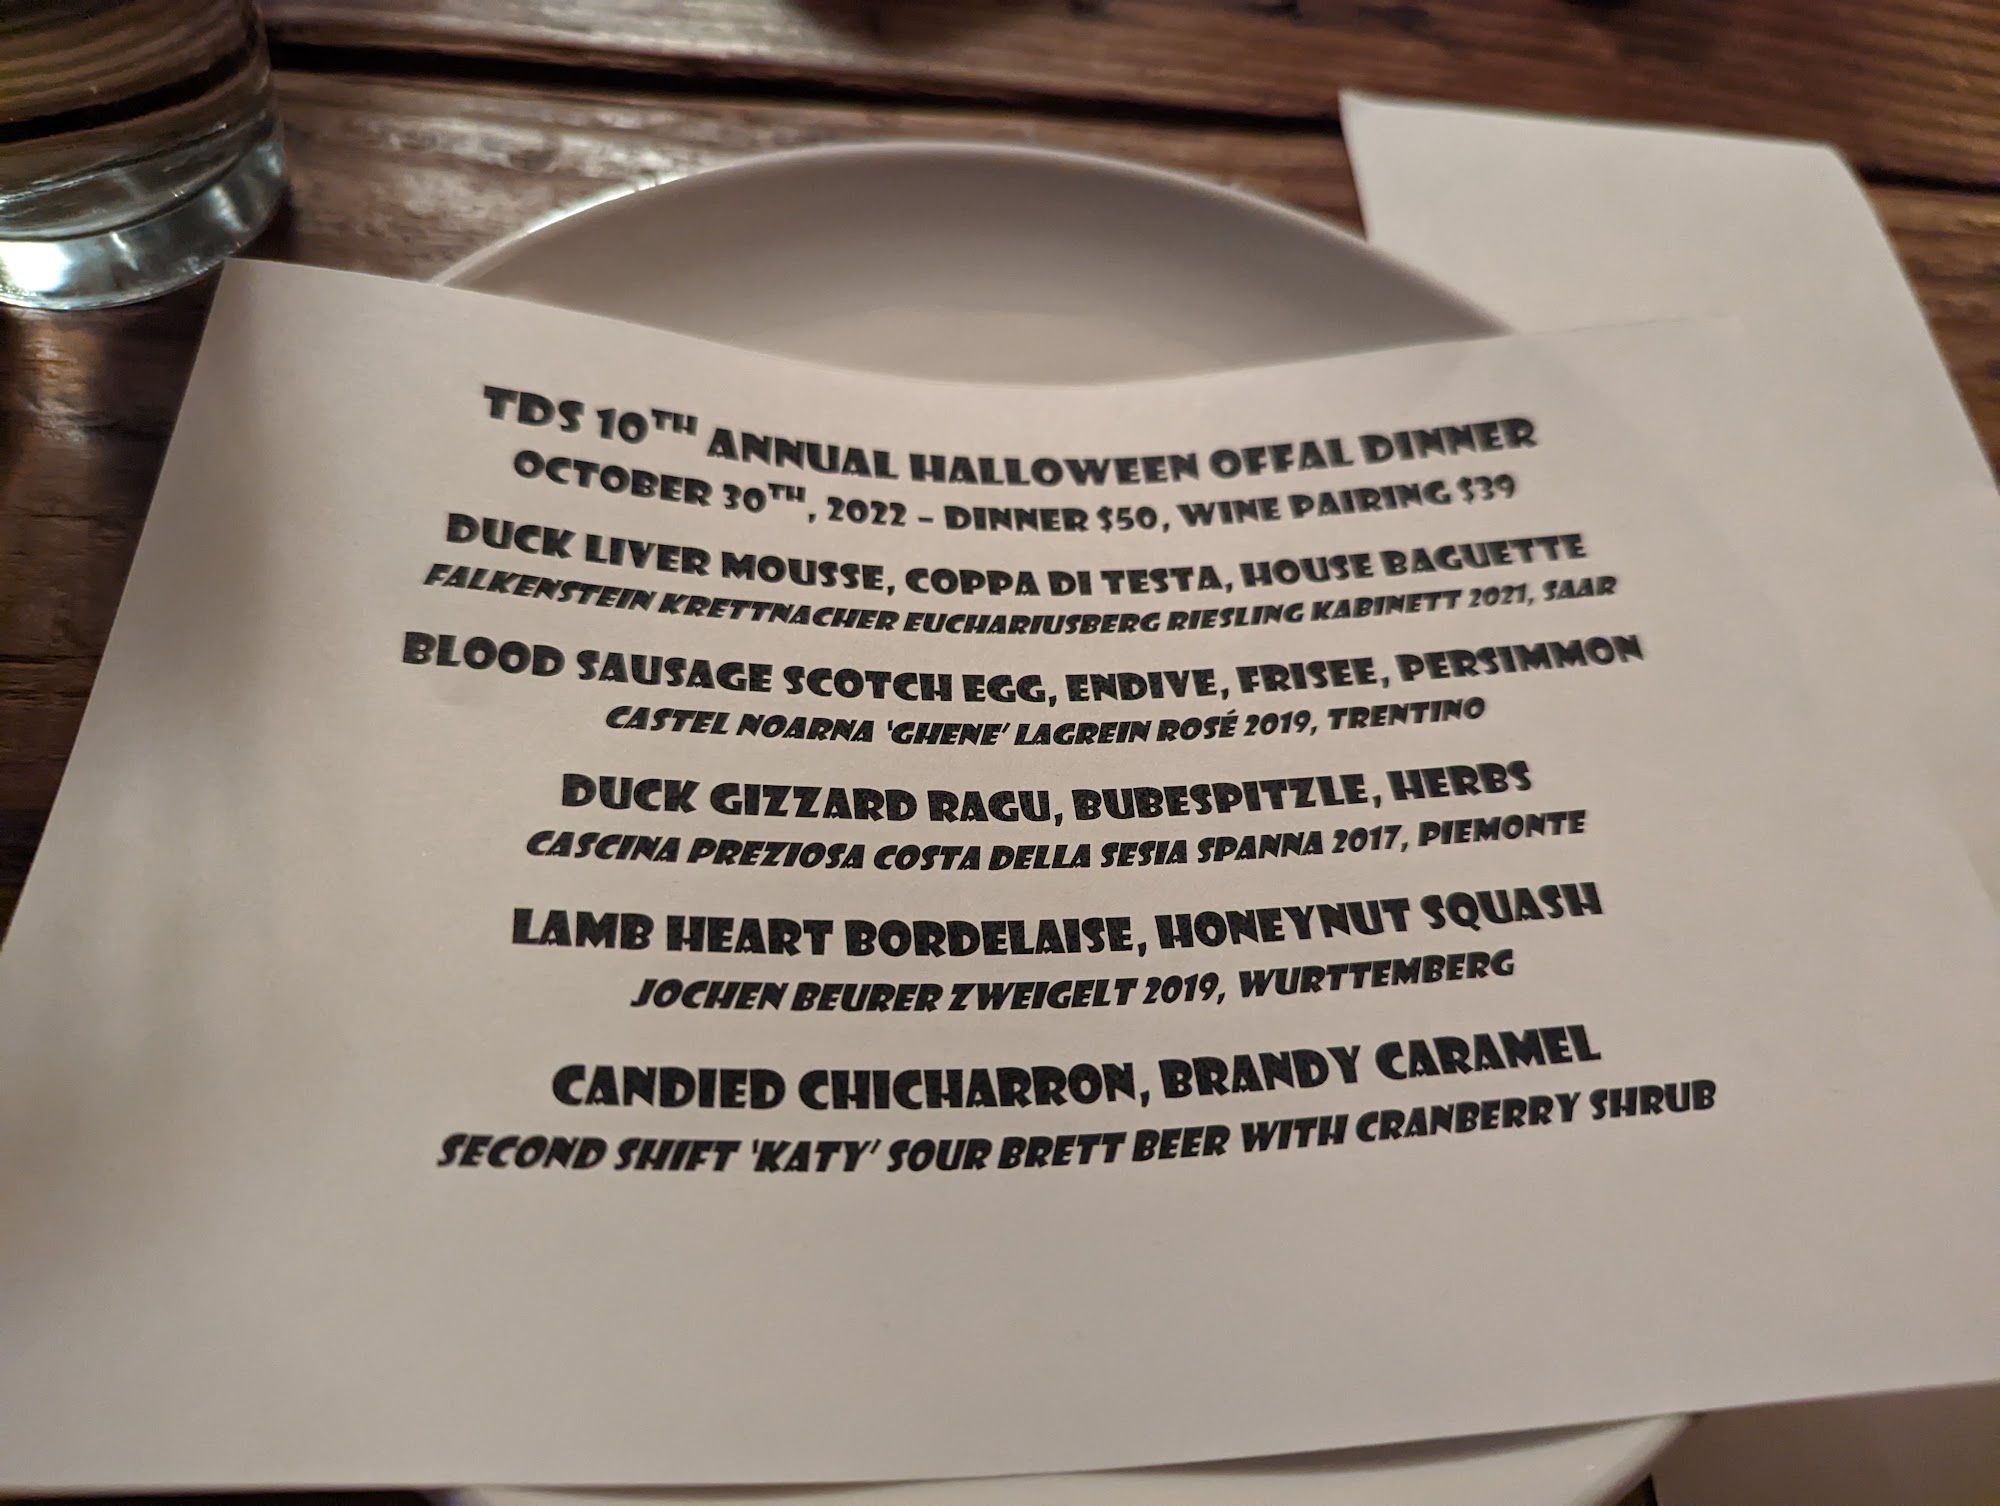 TDS 10TH ANNUAL HALLOWEEN OFFAL DINNER
OCTOBER 30TH, 2022 – DINNER $50, WINE PAIRING $39
DUCK LIVER MOUSSE, COPPA DI TESTA, HOUSE BAGUETTE
FALKENSTEIN KRETTNACHER EUCHARIUSBERG RIESLING KABINETT 2021, SAAR
BLOOD SAUSAGE SCOTCH EGG, ENDIVE, FRISEE, PERSIMMON
CASTEL NOARNA ‘GHENE’ LAGREIN ROSÉ 2019, TRENTINO
DUCK GIZZARD RAGU, BUBESPITZLE, HERBS
CASCINA PREZIOSA COSTA DELLA SESIA SPANNA 2017, PIEMONTE
LAMB HEART BORDELAISE, HONEYNUT SQUASH
JOCHEN BEURER ZWEIGELT 2019, WURTTEMBERG
CANDIED CHICHARRON, BRANDY CARAMEL
SECOND SHIFT ‘KATY’ SOUR BRETT BEER WITH CRANBERRY SHRUB